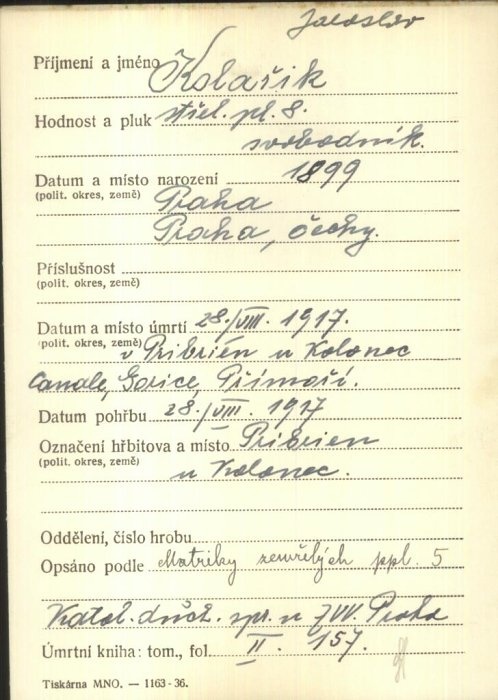 Jaroslav
Příjmení a jméno Kolařík
Hodnost a pluk střel. pl. 8.
svobodník.
Datum a místo narození 1899
(polit. okres, země) Praha
Praha, Čechy.
Příslušnost
(polit. okres, země)
Datum a místo úmrtí 28./VIII. 1917.
(polit. okres, země) v Pribrién u Kolonec
Canale, Gorice, Přímoří.
Datum pohřbu 28./VIII. 1917
Označení hřbitova a místo Pribrien
(polit. okres, země) u Kolonec.
Oddělení, číslo hrobu
Opsáno podle Matriky zemřelých ppl. 5
Katol. duch. spr. u ZVV. Praha
Úmrtní kniha: tom., fol. II. 157.
Tiskárna MNO. — 1163-36.